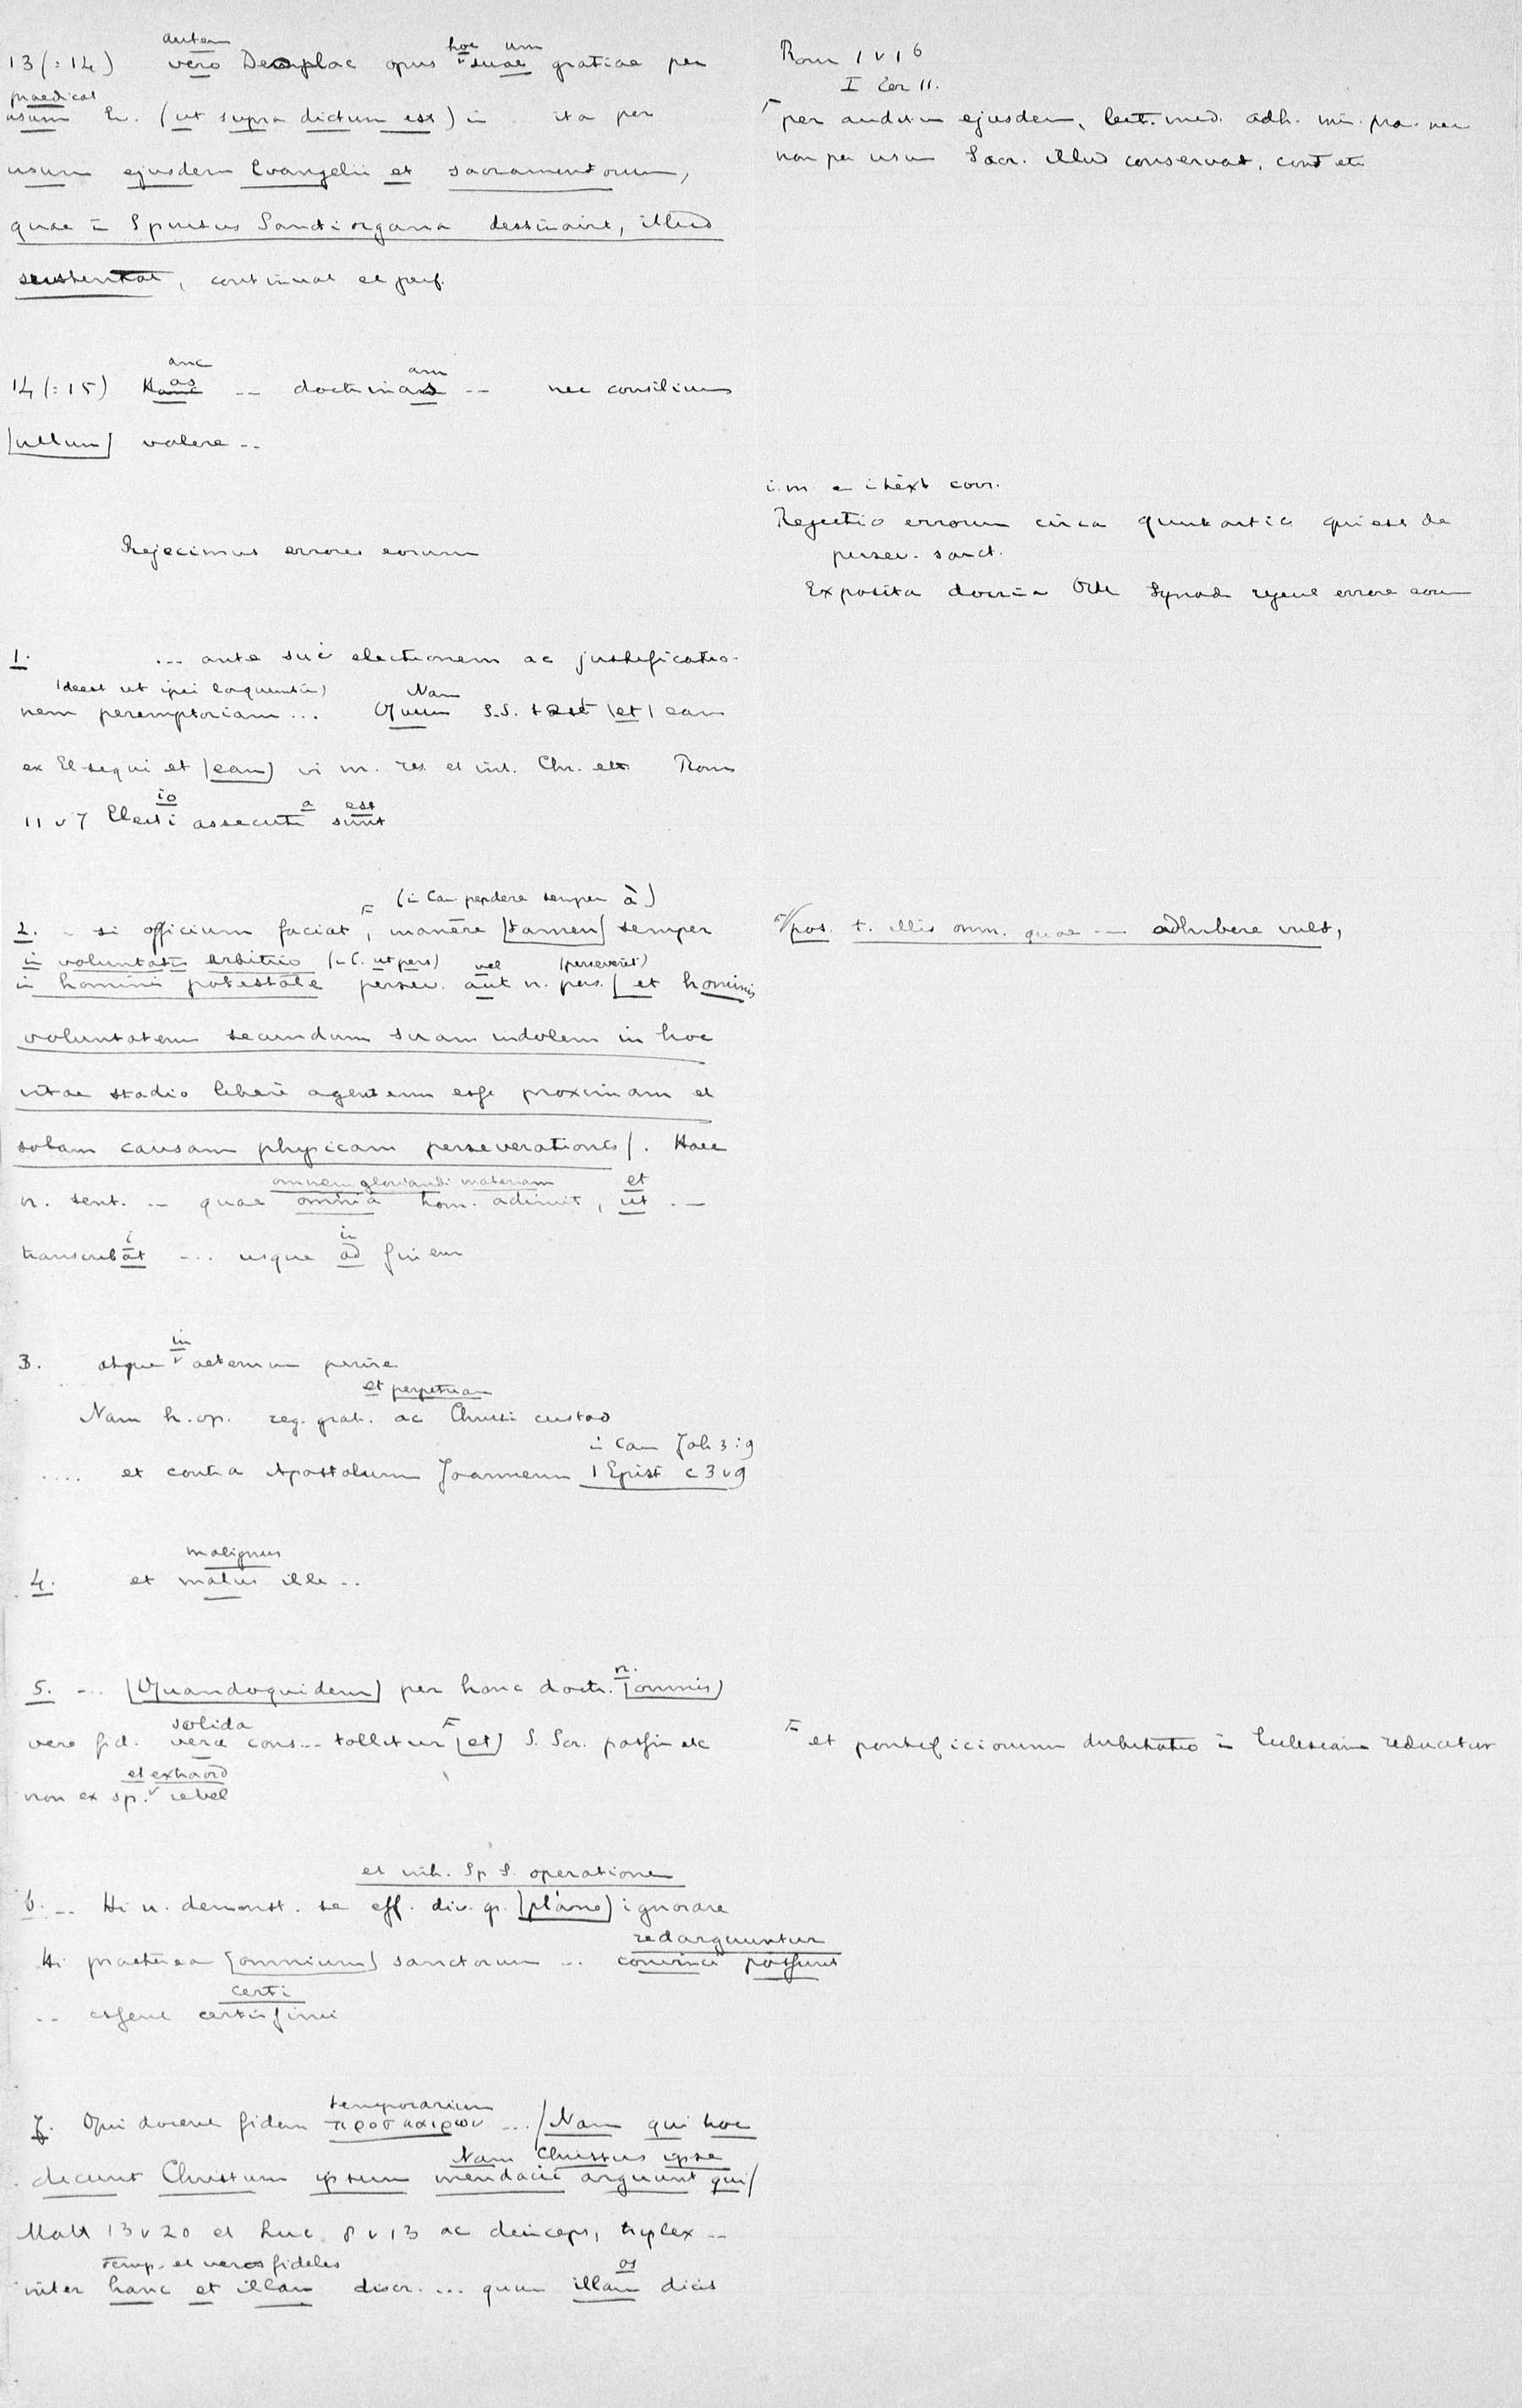 autem hoc um
13 (: 14) vero Deo plac opus suae gratiae per
praedicat
usum Ev. (ut supra dictum est) in ita per
usum ejusdem Evangelii et sacramentorum,
quae in Spiritus Sancti organa destinavit, illud
sustentat, continuat et perf.
Rom 1 v 16
I Cor 11.
per auditum ejusdem, lect. med. adh. min. pro. nec
non per usum Sacr. illud conservat, cont etc
anc as am
14 (: 15) Hanc -- doctrinas -- nec consilium
[ullum] valere --
i. m. a i text corr.
Rejectio errorum circa quint artic qui est de
persev. sanct.
Exposita doctrina Orth Synod rejicit errores eorum
Rejecimus errores eorum
1. ... ante sui electionem ac justificatio-
(deest ut ipsi loquuntur) Nam
nem peremptoriam ... Quum S.S. test [et] eam
ex El sequi et [eam] vi m. res. et int. Chr. etc Rom
io a est
11 v 7 Electi assecuti sunt
(in Can pendere semper à)
2. - si officium faciat, manere [tamen] semper
in voluntatis arbitrio (in C. ut pers) vel (perseveret)
in hominis potestate persev. aut n. pers. [et hominis
voluntatem secundum suam indolem in hoc
vitae stadio libere agentem esse proximam et
solam causam physicam perseverationis]. Haec
omnem gloriandi materiam et
n. sent. -- quae omnia hom. adimit, ut --
i in
transcribat ... usque ad finem
pos. t. illis omn. quae --- adhibere vult,
in
3. atque aeternum perire
et perpetuam
Nam h. op. reg. grat. ac Christi custod
in Can Joh 3 : 9
.... et contra Apostolum Joannem 1 Epist c 3 v 9
malignus
4. et malus ille ..
n.
5. -- [Quandoquidem] per hanc doctr. [omnis]
solida
vere fid. vera cons -- tollitur [et] S. Scr. passim etc
et extraord
non ex sp. revel
et pontificiorum dubitatio in Ecclesiam reducitur
et mih. Sp S. operatione
6. -- Hi n. demonst. se eff. div. gr. [plane] ignorare
redarguuntur
Hi praeterea [omnium] sanctorum ... convinci possunt
certi
-- essent certissimi
temporarium
7. Qui docent fidem προσκαιρων ... [Nam qui hoc
Nam Christus ipse
dicunt Christum ipsum mendacii arguunt qui]
Matt 13 v 20 et Luc 8 v 13 ac deinceps, triplex --
temp. et veros fideles os
inter hanc et illam discr. ... quam illam dicit